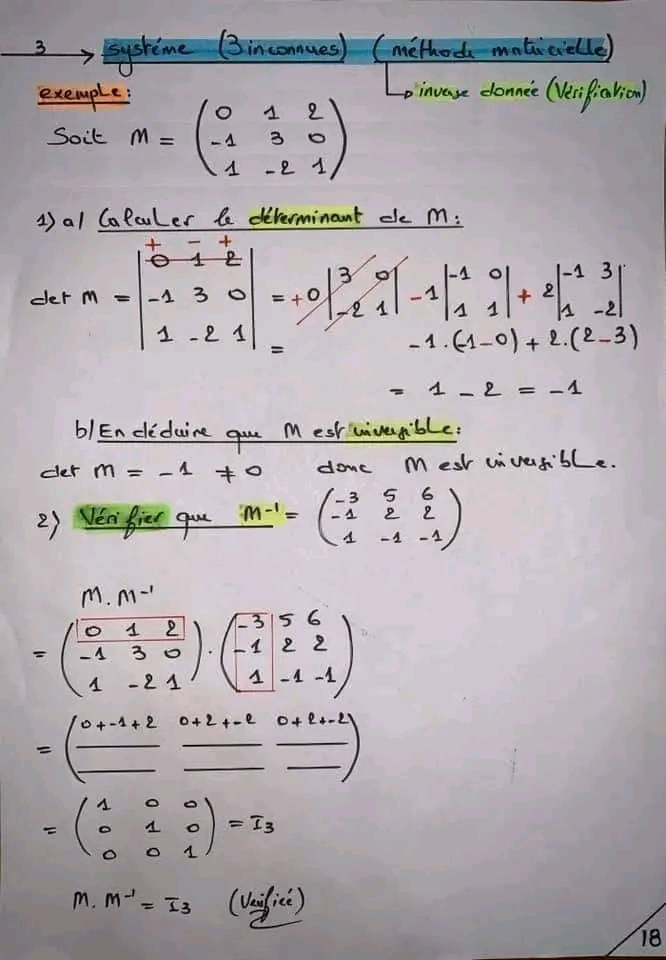 3 → systéme (3 inconnues) (méthode matricielle)
↳ inverse donnée (Vérification)
exemple:
Soit M = ( 0 1 2
-1 3 0
1 -2 1 )
1) a/ Calculer le déterminant de M:
+ - +
det M = | 0 1 2
-1 3 0
1 -2 1 | = +0 | 3 0
-2 1 | -1 | -1 0
1 1 | + 2 | -1 3
1 -2 |
= -1.(-1-0) + 2.(2-3)
= 1 - 2 = -1
b/ En déduire que M est inversible:
det M = -1 ≠ 0 donc M est inversible.
2) Vérifier que M⁻¹ = ( -3 5 6
-1 2 2
1 -1 -1 )
M.M⁻¹
= ( 0 1 2
-1 3 0
1 -2 1 ) . ( -3 5 6
-1 2 2
1 -1 -1 )
= ( 0+-1+2 0+2+-2 0+2+-2 )
= ( 1 0 0
0 1 0
0 0 1 ) = I₃
M.M⁻¹ = I₃ (Verifiée)
18